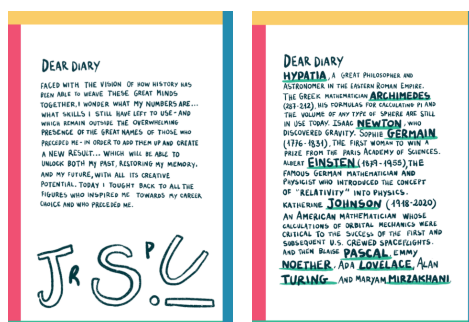 DEAR DIARY
FACED WITH THE VISION OF HOW HISTORY HAS
BEEN ABLE TO WEAVE THESE GREAT MINDS
TOGETHER, I WONDER WHAT MY NUMBERS ARE...
WHAT SKILLS I STILL HAVE LEFT TO USE - AND
WHICH REMAIN OUTSIDE THE OVERWHELMING
PRESENCE OF THE GREAT NAMES OF THOSE WHO
PRECEDED ME - IN ORDER TO ADD THEM UP AND CREATE
A NEW RESULT... WHICH WILL BE ABLE TO
UNLOCK BOTH MY PAST, RESTORING MY MEMORY,
AND MY FUTURE, WITH ALL ITS CREATIVE
POTENTIAL. TODAY I TOUGHT BACK TO ALL THE
FIGURES WHO INSPIRED ME TOWARDS MY CAREER
CHOICE AND WHO PRECEDED ME.
JR SP. U
DEAR DIARY
HYPATIA, A GREAT PHILOSOPHER AND
ASTRONOMER IN THE EASTERN ROMAN EMPIRE.
THE GREEK MATHEMATICIAN ARCHIMEDES
(287-212), HIS FORMULAS FOR CALCULATING PI AND
THE VOLUME OF ANY TYPE OF SPHERE ARE STILL
IN USE TODAY. ISAAC NEWTON, WHO
DISCOVERED GRAVITY. SOPHIE GERMAIN
(1776-1831), THE FIRST WOMAN TO WIN A
PRIZE FROM THE PARIS ACADEMY OF SCIENCES.
ALBERT EINSTEN (1879-1955), THE
FAMOUS GERMAN MATHEMATICIAN AND
PHYSICIST WHO INTRODUCED THE CONCEPT
OF "RELATIVITY" INTO PHYSICS.
KATHERINE JOHNSON (1918-2020)
AN AMERICAN MATHEMATICIAN WHOSE
CALCULATIONS OF ORBITAL MECHANICS WERE
CRITICAL TO THE SUCCESS OF THE FIRST AND
SUBSEQUENT U.S. CREWED SPACEFLIGHTS.
AND THEN BLAISE PASCAL, EMMY
NOETHER, ADA LOVELACE, ALAN
TURING AND MARYAM MIRZAKHANI.